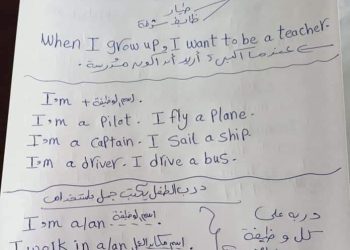 خيار
وظائف شرطة
When I grow up, I want to be a teacher.
عندما أكبر، أريد أن أكون مدرسة.
I'm + اسم الوظيفة.
I'm a Pilot. I fly a plane.
I'm a captain. I sail a ship.
I'm a driver. I drive a bus.
درب الطفل يكتب جمل باستخدام
I'm a/an اسم الوظيفة
I work in a/an اسم مكان العمل
دربه على
كل وظيفة